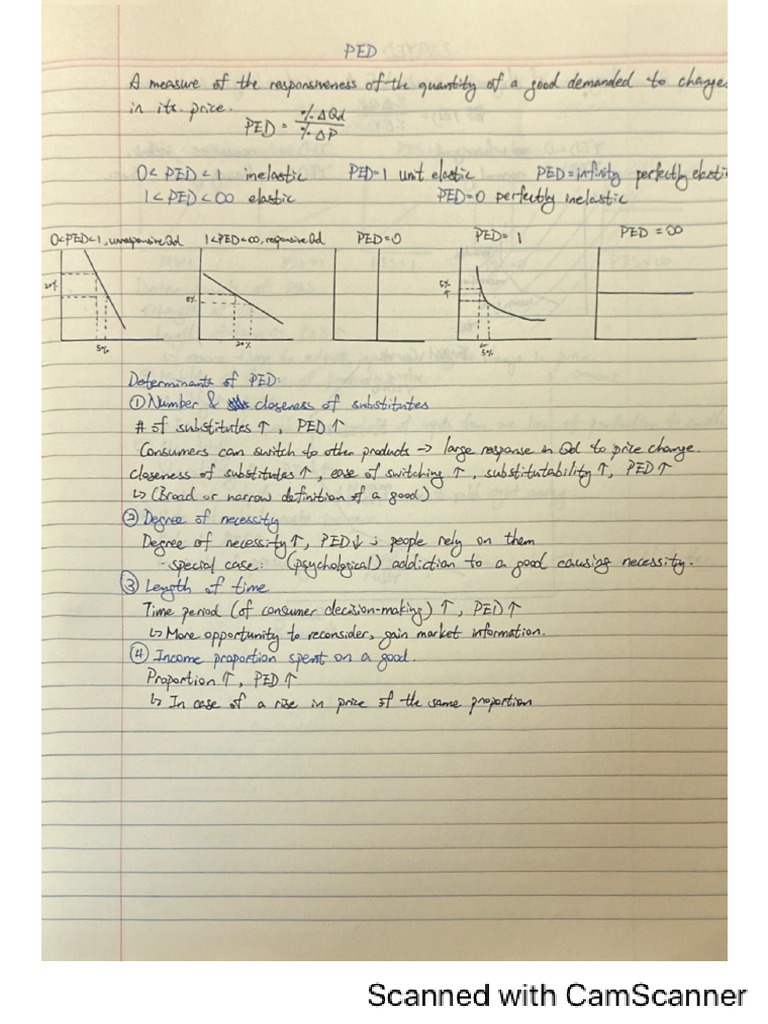 PED
A measure of the responsiveness of the quantity of a good demanded to change
in its price.
PED = %ΔQd / %ΔP
0< PED < 1 inelastic PED=1 unit elastic PED=infinity perfectly elasti
1< PED < ∞ elastic PED=0 perfectly inelastic
0<PED<1, unresponsive Qd 1<PED<∞, responsive Qd PED=0 PED= 1 PED = ∞
20% 5%
20% 5% 5%
Determinants of PED:
① Number & closeness of substitutes
# of substitutes ↑, PED ↑
Consumers can switch to other products → large response in Qd to price change.
closeness of substitutes ↑, ease of switching ↑, substitutability ↑, PED ↑
↳ (Broad or narrow definition of a good)
② Degree of necessity
Degree of necessity ↑, PED ↓ ; people rely on them
- special case: (psychological) addiction to a good causing necessity.
③ Length of time
Time period (of consumer decision-making) ↑, PED ↑
↳ More opportunity to reconsider, gain market information.
④ Income proportion spent on a good.
Proportion ↑, PED ↑
↳ In case of a rise in price of the same proportion
Scanned with CamScanner